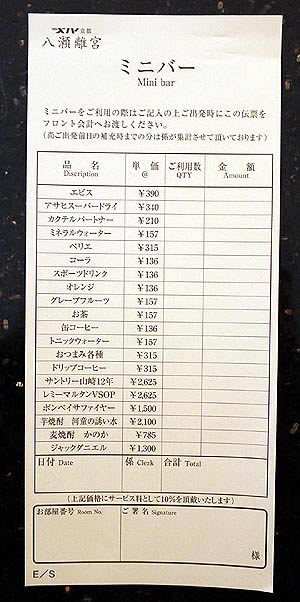 XIV 京都
八瀬離宮
ミニバー
Mini bar
ミニバーをご利用の際はご記入の上ご出発時にこの伝票を
フロント会計へお渡しください。
(尚ご出発前日の補充時までの分は係が集計させて頂いております)
品名 単価 ご利用数 金額
Discription @ QTY Amount
エビス ¥390
アサヒスーパードライ ¥340
カクテルパートナー ¥210
ミネラルウォーター ¥157
ペリエ ¥315
コーラ ¥136
スポーツドリンク ¥136
オレンジ ¥136
グレープフルーツ ¥157
お茶 ¥157
缶コーヒー ¥136
トニックウォーター ¥157
おつまみ各種 ¥315
ドリップコーヒー ¥315
サントリー山崎12年 ¥2,625
レミーマルタンVSOP ¥2,625
ボンベイサファイヤー ¥1,500
芋焼酎 河童の誘い水 ¥2,100
麦焼酎 かのか ¥785
ジャックダニエル ¥1,300
日付 Date 係 Clerk 合計 Total
(上記価格にサービス料として10%を頂戴いたします)
お部屋番号 Room No. ご署名 Signature
様
E/S